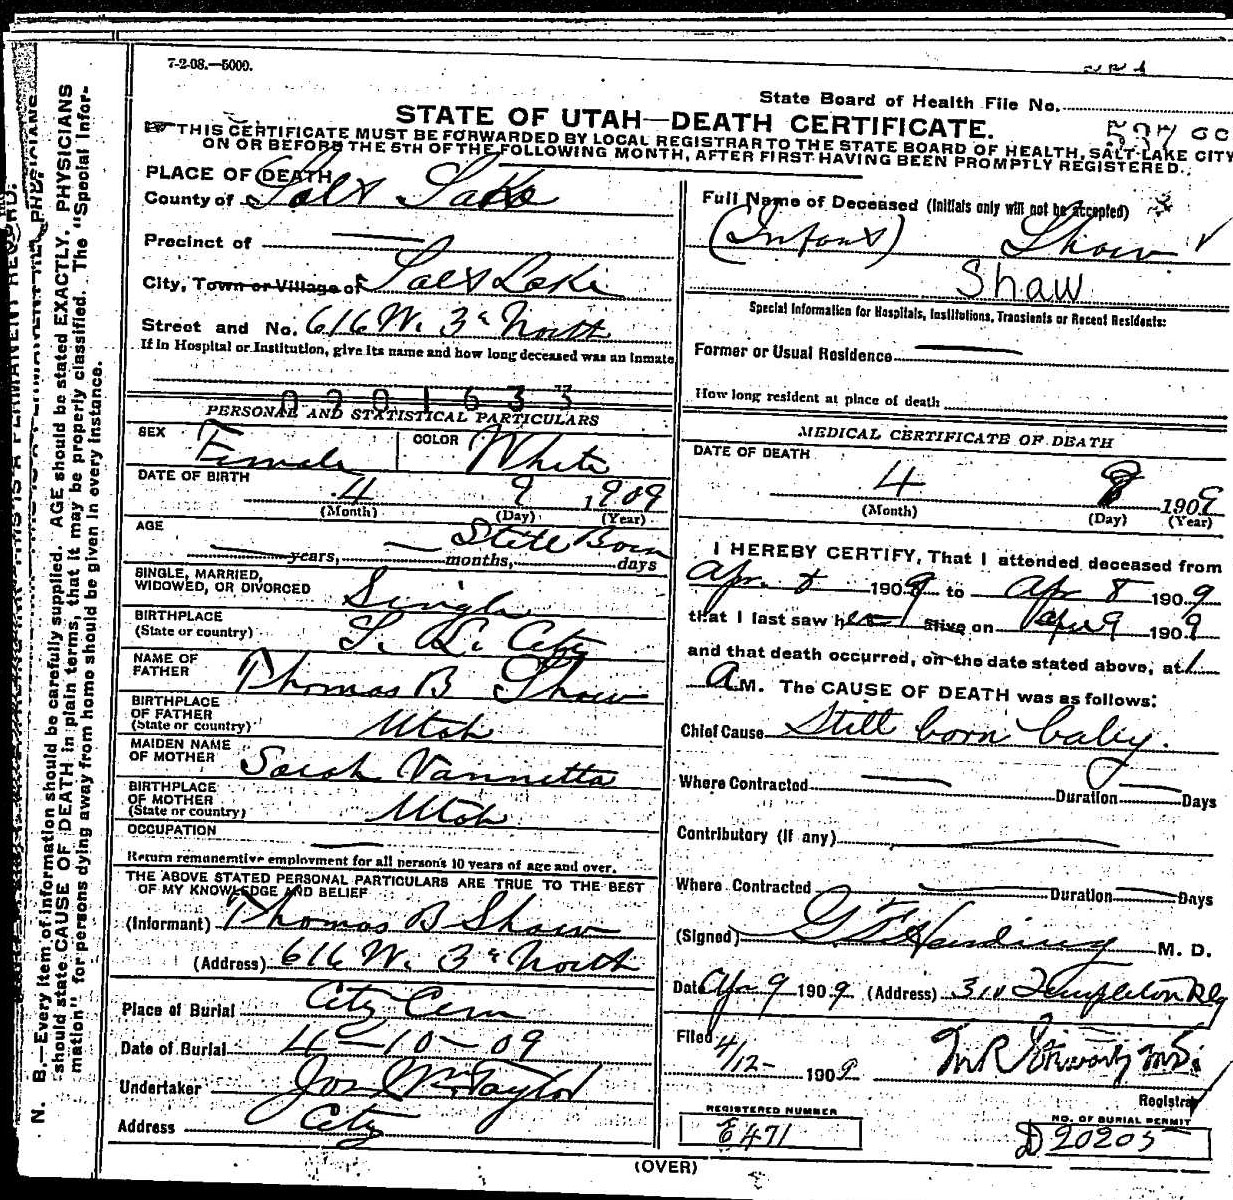 7-2-08.—5000.
State Board of Health File No.
STATE OF UTAH—DEATH CERTIFICATE.
537
THIS CERTIFICATE MUST BE FORWARDED BY LOCAL REGISTRAR TO THE STATE BOARD OF HEALTH, SALT LAKE CITY
ON OR BEFORE THE 5TH OF THE FOLLOWING MONTH, AFTER FIRST HAVING BEEN PROMPTLY REGISTERED.
N. B.—Every item of information should be carefully supplied. AGE should be stated EXACTLY, PHYSICIANS
should state CAUSE OF DEATH in plain terms, that it may be properly classified. The "Special Infor-
mation" for persons dying away from home should be given in every instance.
PLACE OF DEATH
County of Salt Lake
Precinct of —
City, Town or Village of Salt Lake
Street and No. 616 W. 3d North
If in Hospital or Institution, give its name and how long deceased was an inmate
0201633
PERSONAL AND STATISTICAL PARTICULARS
SEX Female COLOR White
DATE OF BIRTH 4 9 1909
(Month) (Day) (Year)
AGE Still Born
— years, — months, days
SINGLE, MARRIED,
WIDOWED, OR DIVORCED Single
BIRTHPLACE
(State or country) S. L. City
NAME OF
FATHER Thomas B Shaw
BIRTHPLACE
OF FATHER
(State or country) Utah
MAIDEN NAME
OF MOTHER Sarah Vannetta
BIRTHPLACE
OF MOTHER
(State or country) Utah
OCCUPATION —
Return remunerative employment for all persons 10 years of age and over.
THE ABOVE STATED PERSONAL PARTICULARS ARE TRUE TO THE BEST
OF MY KNOWLEDGE AND BELIEF
(Informant) Thomas B Shaw
(Address) 616 W. 3d North
Place of Burial City Cem
Date of Burial 4-10-09
Undertaker Jos Wm Taylor
Address City
Full Name of Deceased (Initials only will not be accepted)
(Infant) Shaw
Shaw
Special Information for Hospitals, Institutions, Transients or Recent Residents:
Former or Usual Residence —
How long resident at place of death
MEDICAL CERTIFICATE OF DEATH
DATE OF DEATH
4 1909
(Month) (Day) (Year)
I HEREBY CERTIFY, That I attended deceased from
Apr. 8 1909 to Apr 8 1909
that I last saw her alive on Apr 9 1909
and that death occurred, on the date stated above, at 1
A M. The CAUSE OF DEATH was as follows:
Chief Cause Still born baby.
Where Contracted — Duration — Days
Contributory (if any) —
Where Contracted — Duration — Days
(Signed) G. F. Harding M. D.
Date Apr 9 1909 (Address) 311 Templeton Bldg
Filed 4/12- 1909
Registrar
REGISTERED NUMBER
E471
NO. OF BURIAL PERMIT
D 20205
(OVER)